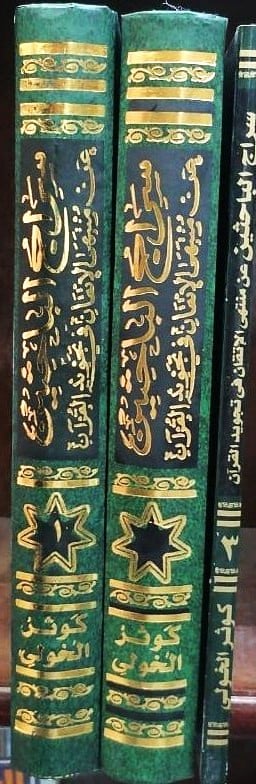 سراج الباحثين
عن منتهى الإتقان في تجويد القرآن
١
كوثر
الخولي
سراج الباحثين
عن منتهى الإتقان في تجويد القرآن
كوثر
الخولي
سراج الباحثين عن منتهى الإتقان في تجويد القرآن
٣
كوثر الخولي